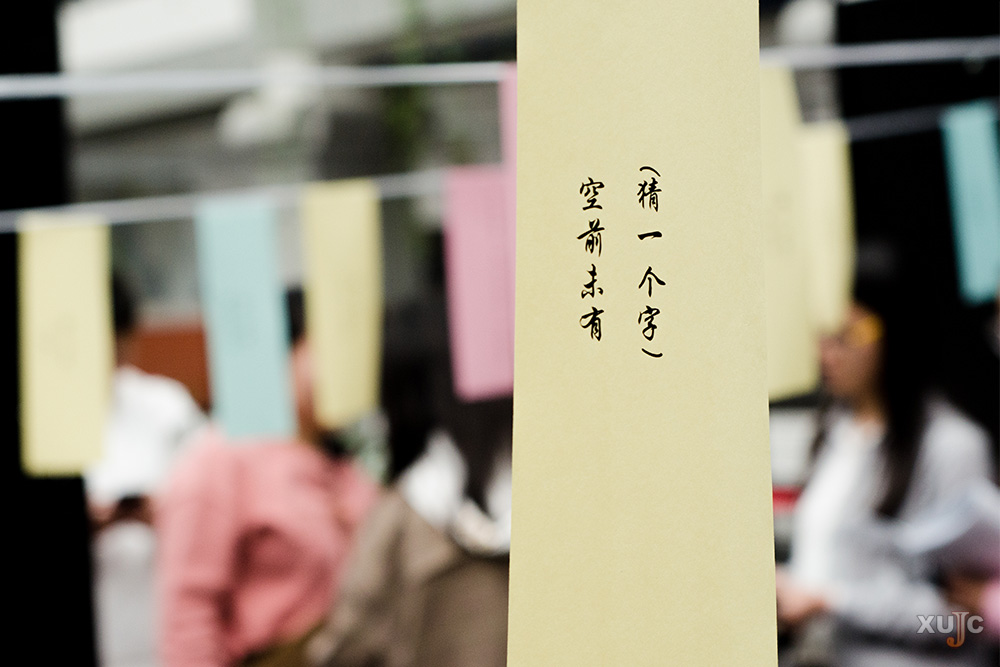 (猜一个字)
空前未有
XUJC